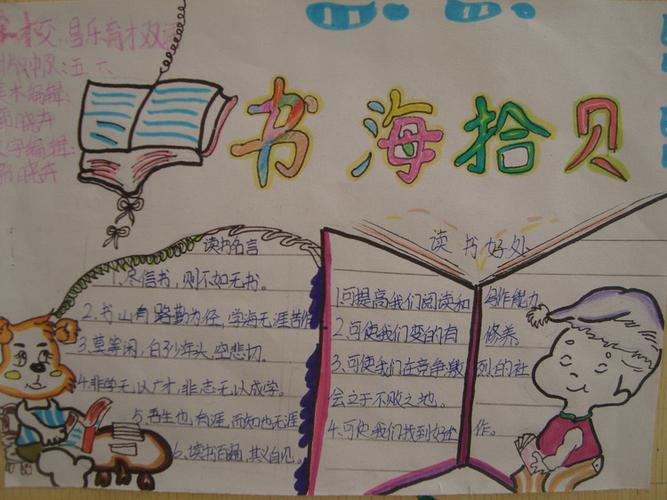 学校:昌乐育才双语
班级:五、六
美术编辑:
文字编辑:
书海拾贝
读书名言
1.尽信书,则不如无书。
2.书山有路勤为径,学海无涯苦作
3.莫等闲,白了少年头,空悲切。
4.非学无以广才,非志无以成学。
5.吾生也有涯,而知也无涯
6.读书百遍,其义自见。
读书好处
1.可提高我们阅读和写作能力
2.可使我们变的有修养。
3.可使我们在竞争激烈的社
会立于不败之地。
4.可使我们找到好工作。